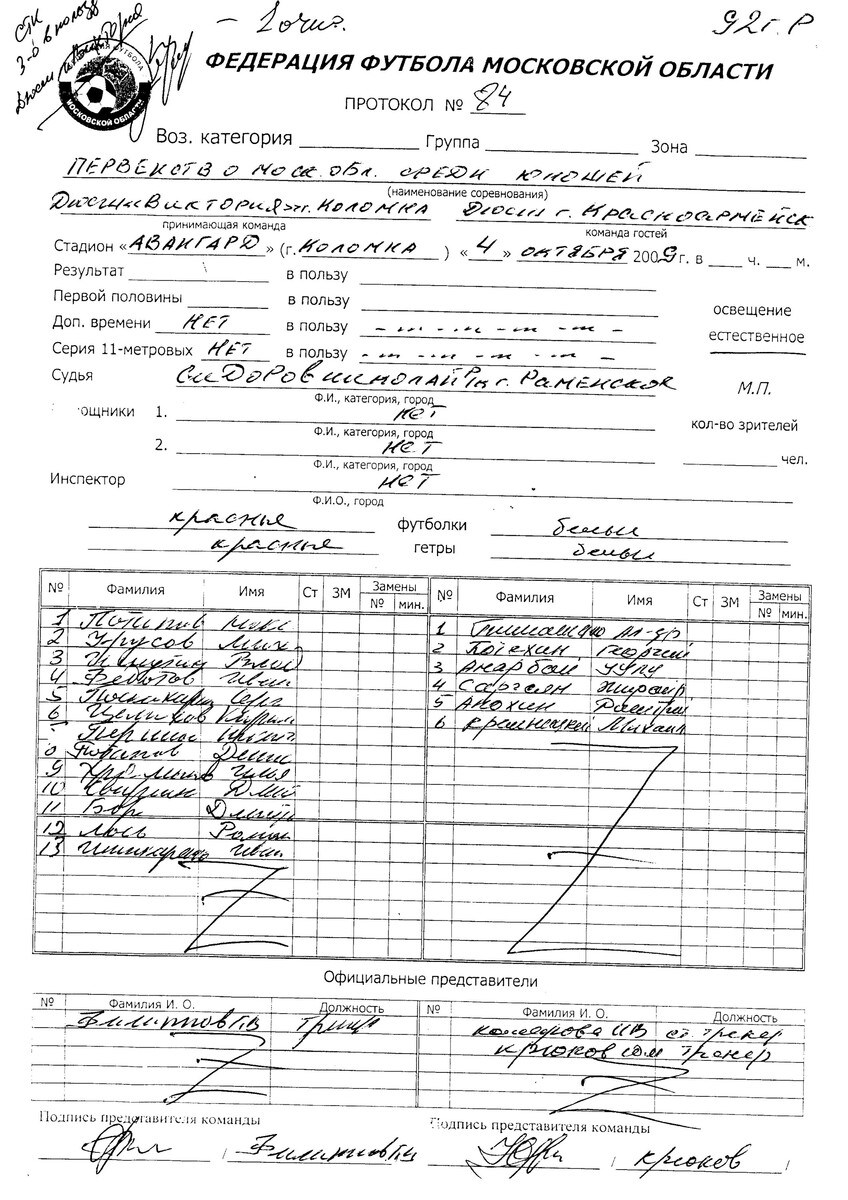 СТК
3-0 в пользу
Дюсш Виктория
92 г. р
ФУТБОЛА
МОСКОВСКОЙ ОБЛАСТИ
ФЕДЕРАЦИЯ ФУТБОЛА МОСКОВСКОЙ ОБЛАСТИ
ПРОТОКОЛ № 84
Воз. категория Группа Зона
ПЕРВЕНСТВО МОСК. ОБЛ. СРЕДИ ЮНОШЕЙ
(наименование соревнования)
г. КОЛОМНА Дюсш г. КРАСНОАРМЕЙСК
принимающая команда команда гостей
Стадион « АВАНГАРД » (г. КОЛОМНА ) « 4 » ОКТЯБРЯ 2009 г. в ч. м.
Результат в пользу
Первой половины в пользу освещение
Доп. времени НЕТ в пользу естественное
Серия 11-метровых НЕТ в пользу
Судья СИДОРОВ НИКОЛАЙ г. РАМЕНСКОЕ М.П.
Ф.И., категория, город
ощники 1. НЕТ кол-во зрителей
Ф.И., категория, город
2. НЕТ чел.
Ф.И., категория, город
Инспектор НЕТ
Ф.И.О., город
красные футболки белые
красные гетры белые
№ Фамилия Имя Ст ЗМ Замены № мин. № Фамилия Имя Ст ЗМ Замены № мин.
1 1 Ал-др
2 Урусов Мих 2 Потехин Георгий
3 Влад 3
4 Федотов Иван 4 Саргсян Жирайр
5 Серг 5 Анохин Дмитрий
6 Кирил 6 Михаил
Потапов Денис
9 Илья
10
11
12 Лось Роман
13 Иван
Официальные представители
№ Фамилия И. О. Должность № Фамилия И. О. Должность
Филиппов тренер ст. тренер
Крюков тренер
Подпись представителя команды Подпись представителя команды
Филиппов Крюков